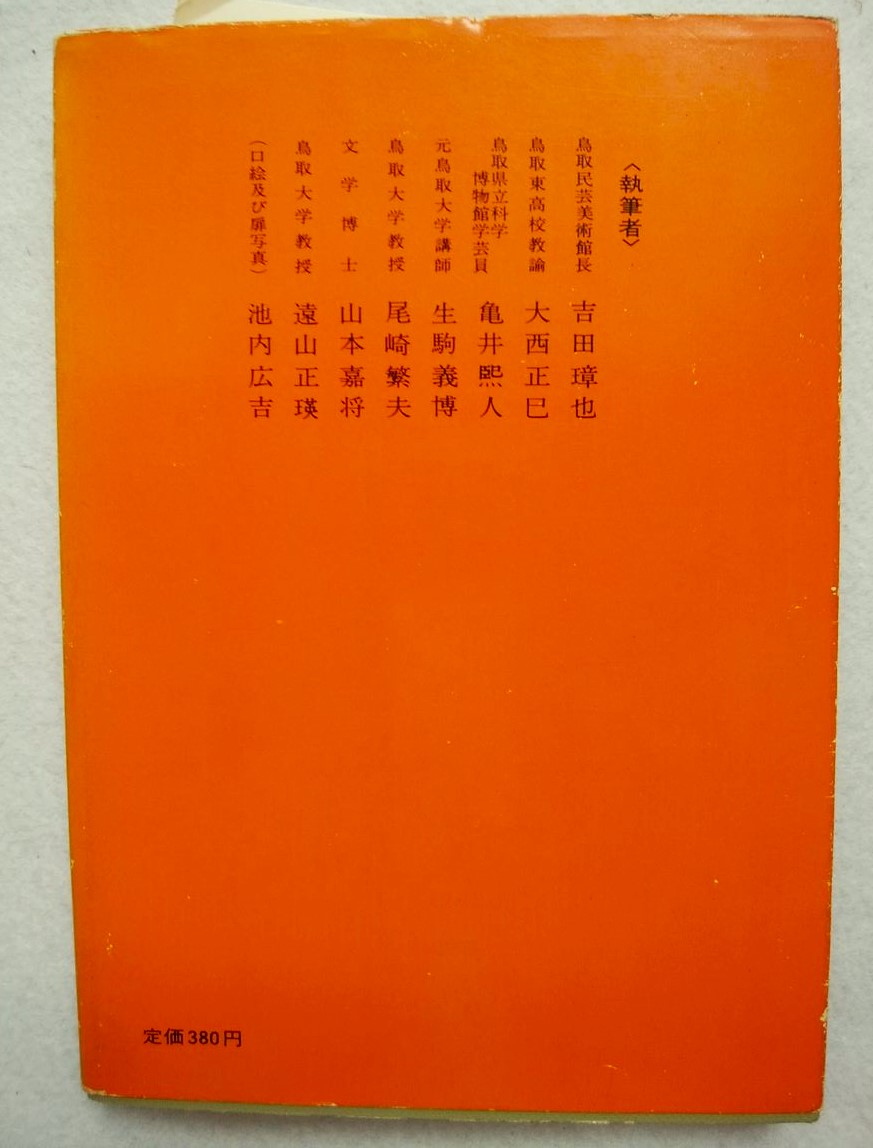 〈執筆者〉
鳥取民芸美術館長 吉田璋也
鳥取東高校教諭 大西正巳
鳥取県立科学
博物館学芸員 亀井熙人
元鳥取大学講師 生駒義博
鳥取大学教授 尾崎繁夫
文学博士 山本嘉将
鳥取大学教授 遠山正瑛
(口絵及び扉写真) 池内広吉
定価380円